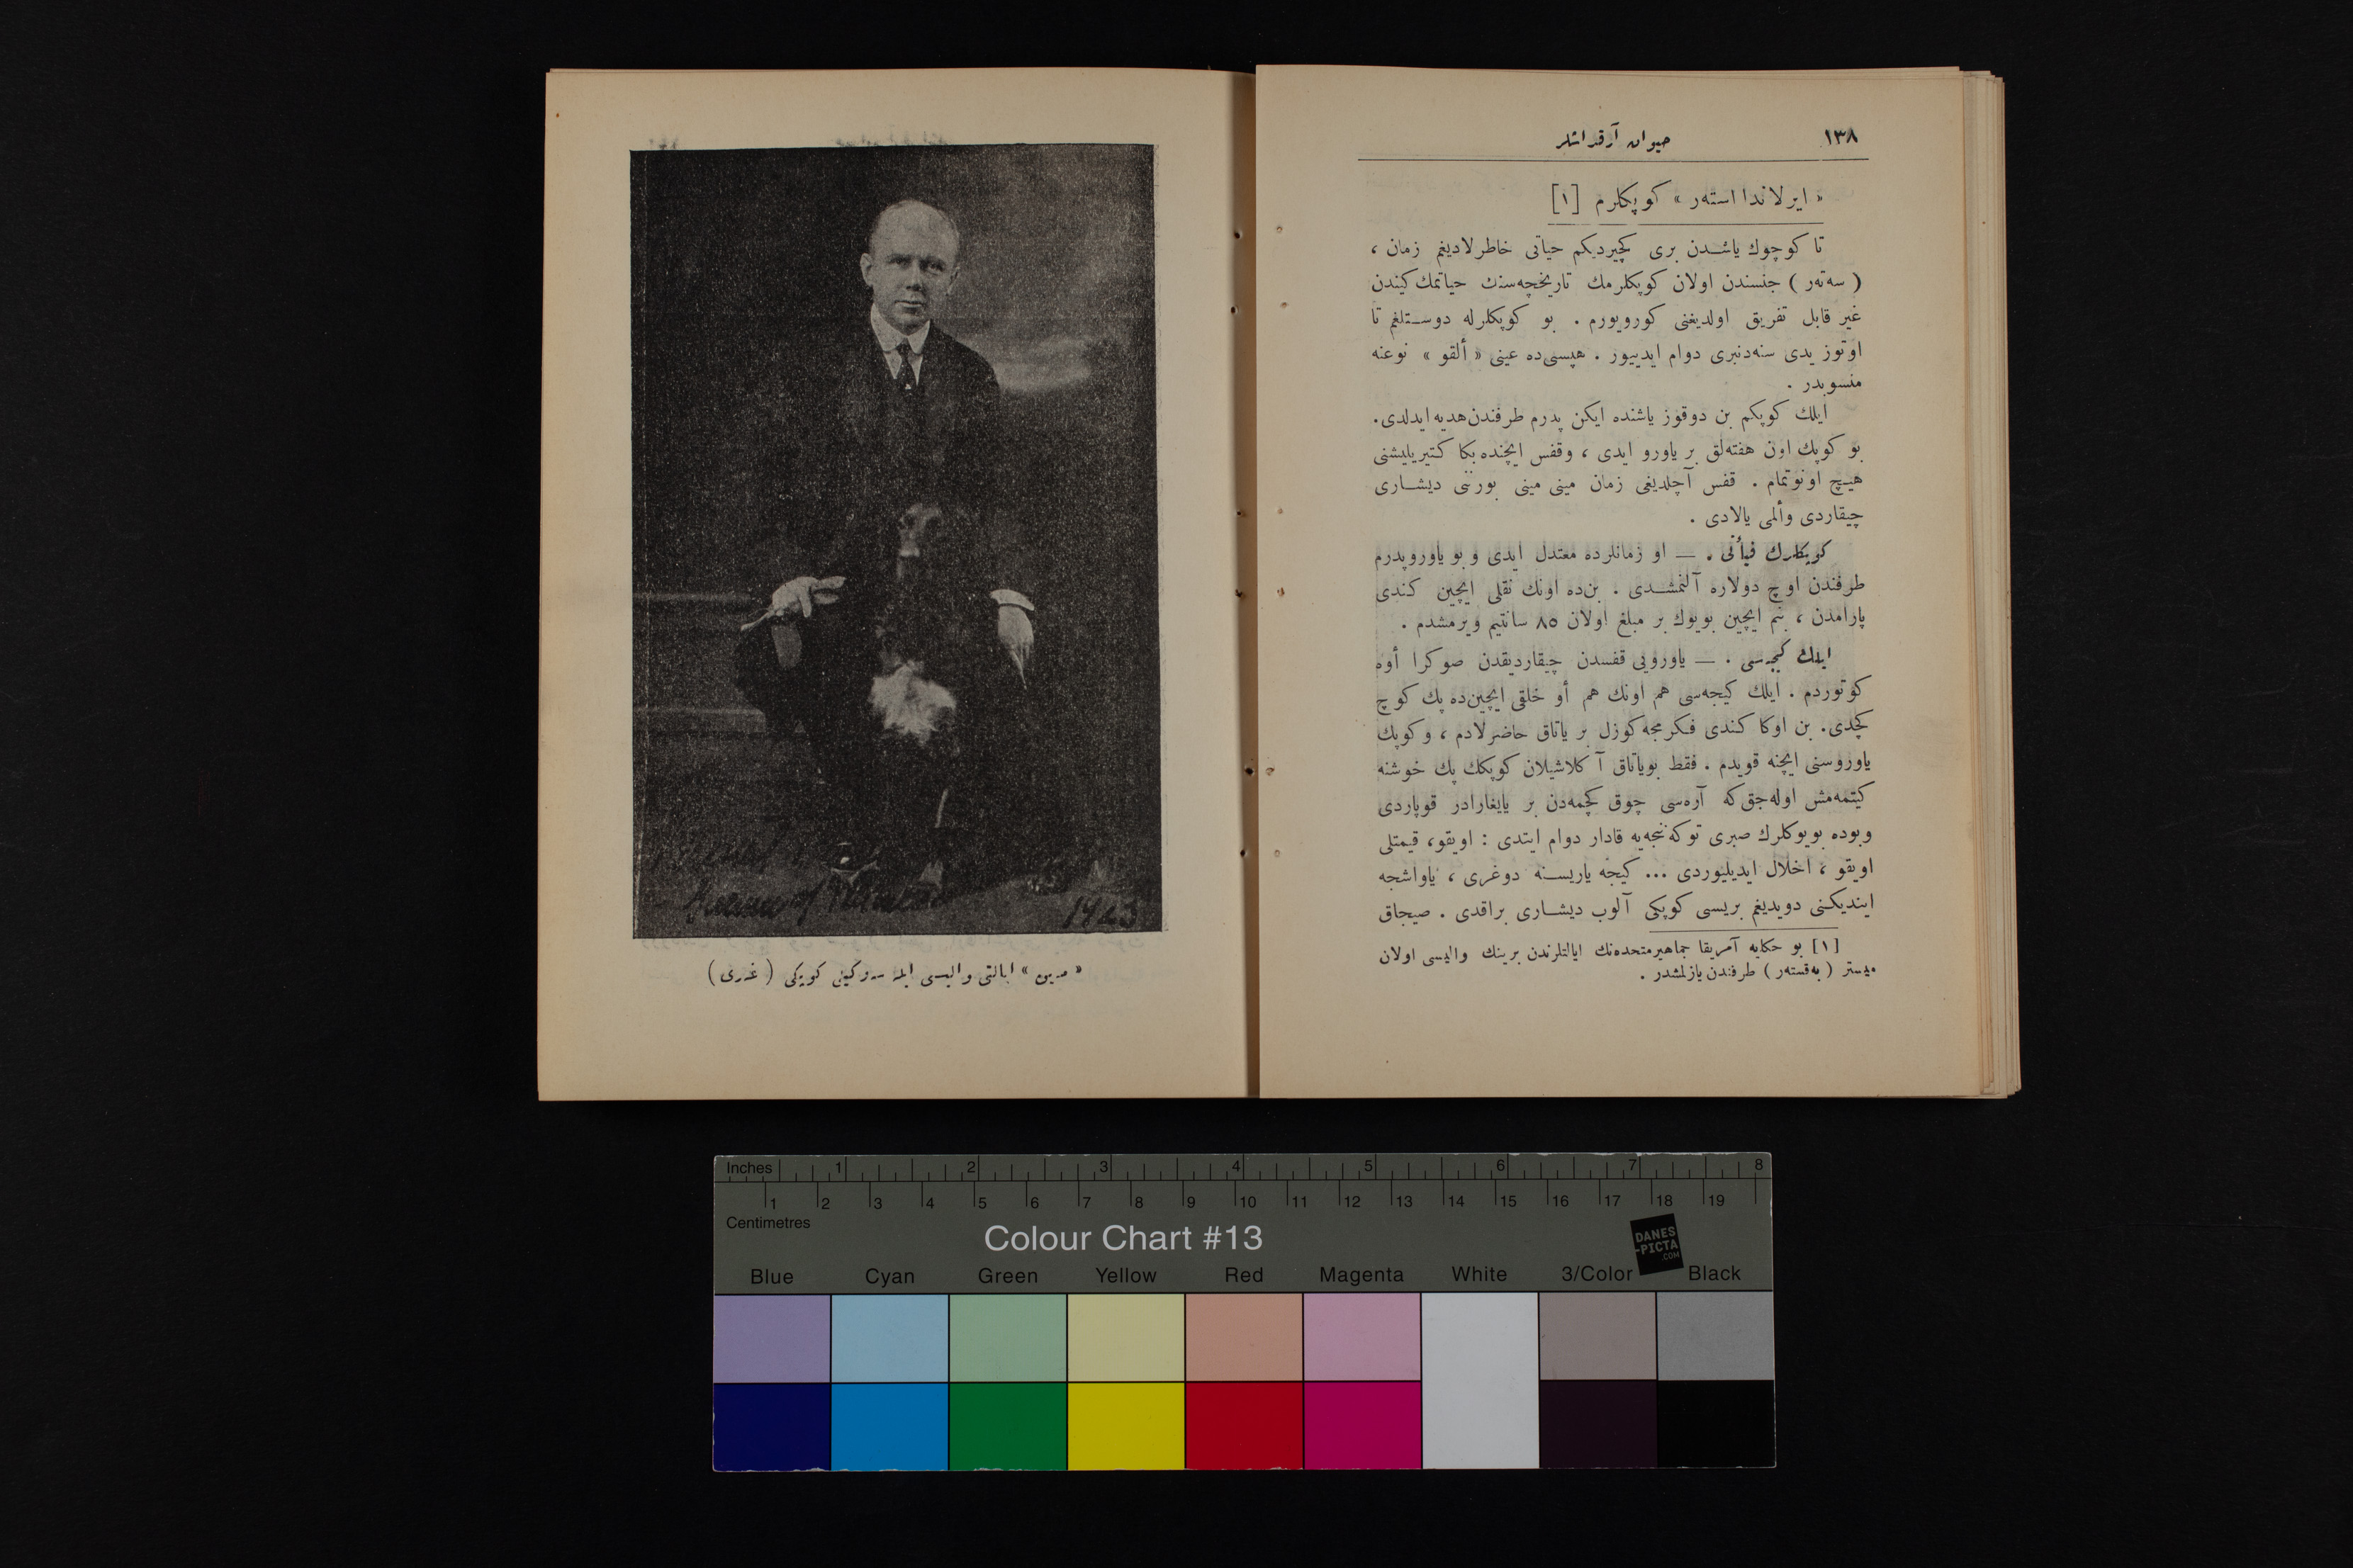 ١٣٨
حیوان آرقداشلر
« ایرلاندا استەر » کوپکلرم [١]
تا کوچوك یاشدن بری کچیردیکم حیاتی خاطرلادیغم زمان ،
( سەتەر ) جنسندن اولان کوپکلرمك تاریخچەسنك حیاتمك کیندن
غیر قابل تفریق اولدیغنی کورویورم . بو کوپکلرله دوستلغم تا
اوتوز یدی سنەدنبری دوام ایدییور . هپسی‌ده عینی « ألقو » نوعنه
منسوبدر .
ایلك کوپکم بن دوقوز یاشنده ایکن پدرم طرفندن هدیه ایدلدی.
بو کوپك اون هفتەلق بر یاورو ایدی ، وقفس ایچنده بکا کتیریلیشنی
هیچ اونوتمام . قفس آچلدیغی زمان مینی مینی بورننی دیشاری
چیقاردی وألمی یالادی .
کوپکلرك فیأتی . — او زمانلرده معتدل ایدی و بو یاورو پدرم
طرفندن اوچ دولاره آلنمشدی . بن‌ده اونك نقلی ایچین کندی
پارامدن ، بنم ایچین بویوك بر مبلغ اولان ٨٥ سانتیم ویرمشدم .
ایلك کیجەسی . — یاورویی قفسدن چیقاردیقدن صوکرا أوه
کوتوردم . ایلك کیجەسی هم اونك هم أو خلقی ایچین‌ده پك کوچ
کچدی. بن اوکا کندی فکرمجه کوزل بر یاتاق حاضرلادم ، و کوپك
یاوروسنی ایچنه قویدم . فقط بویاتاق آکلاشیلان کوپکك پك خوشنه
کیتمەمش اولەجق که آرەسی چوق کچمەدن بر یایغارادر قوپاردی
وبوده بویوکلرك صبری توکەنیجەیه قادار دوام ایتدی : اویقو، قیمتلی
اویقو ، اخلال ایدیلیوردی ... کیجه یاریسنه دوغری ، یاواشجه
ایندیکنی دویدیغم بریسی کوپکی آلوب دیشاری براقدی . صیجاق
[١] بو حکایه آمریقا جماهیر متحدەنك ایالتلرندن برینك والیسی اولان
میستر ( بەقستەر ) طرفندن یازلمشدر .
1923
« مەین » ایالتی والیسی ایله سوکیلی کوپکی ( غەری )
Inches 1 2 3 4 5 6 7 8
1 2 3 4 5 6 7 8 9 10 11 12 13 14 15 16 17 18 19
Centimetres
Colour Chart #13
DANES
-PICTA
.COM
Blue Cyan Green Yellow Red Magenta White 3/Color Black